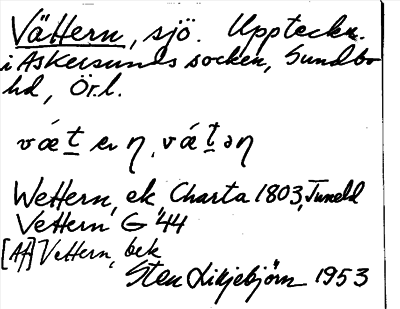 Vättern, sjö. Uppteckn.
i Askersunds socken, Sundbo
hd, Ör.l.
væ´t̲ er η, væ´t̲ əη
Wettern, ek, Charta 1803, Tuneld
Vettern G 44
[Af] Vettern, bek
Sten Liljebjörn 1953